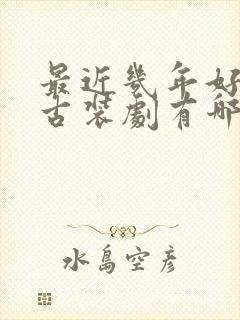 最近幾年好
古装劇有哪
水島空彦